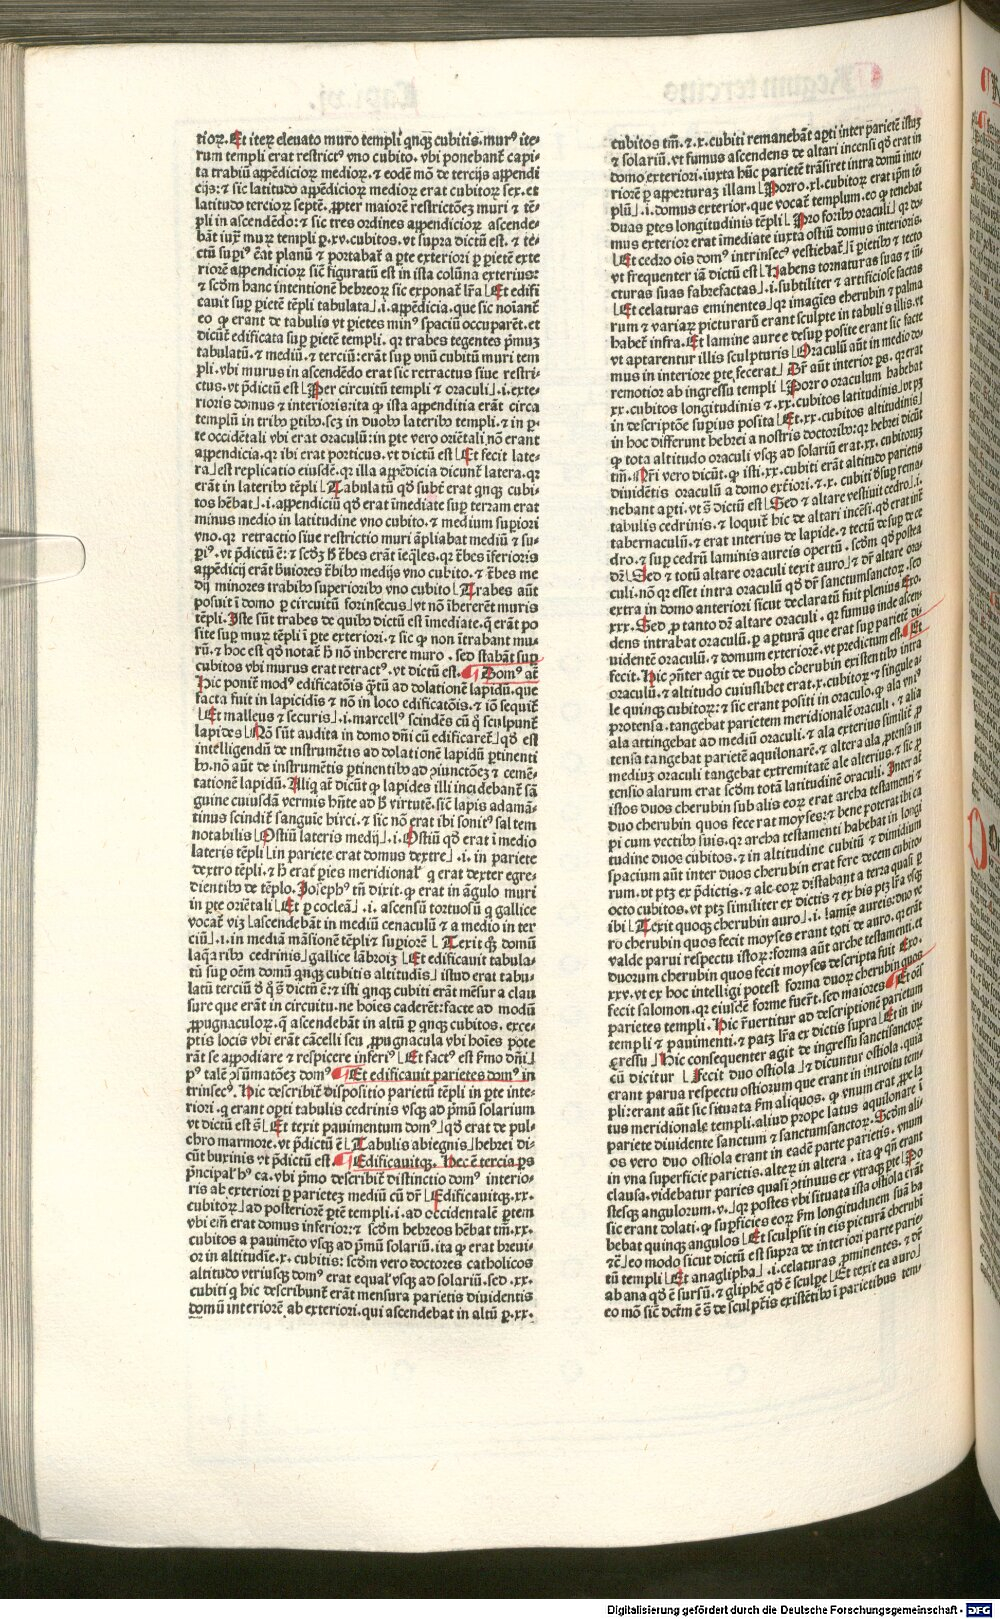 tioꝝ. Et iteꝝ eleuato muro templi qnqꝫ cubitis. murꝰ ite-
rum templi erat restrictꝰ vno cubito. vbi ponebant᷑ capi-
ta trabiū appēdicioꝝ medioꝝ. ⁊ eodē mō de tercijs appendi
cijs: ⁊ sic latitudo appēdicioꝝ medioꝝ erat cubitoꝝ sex. et
latitudo tercioꝝ septē. ꝓpter maiorē restrictōeꝫ muri ⁊ tē-
pli in ascendēdo: ⁊ sic tres ordines appendicioꝝ ascende-
bāt iuxͣ murꝫ templi ꝑ. xv. cubitos. vt supra dictū est. ⁊ te-
ctū supiꝰ ēat planū ⁊ portabat᷑ a ꝑte exteriori ꝑ pietē exte
riorē appendicioꝝ sic figuratū est in ista colūna exterius:
⁊ scd̄m hanc intentionē hebreoꝝ sic exponat᷑ lr̄a ⌊Et edifi
cauit suꝑ ꝑietē tēpli tabulata⌋ .i. appēdicia. que sic noīant᷑
eo ꝙ erant de tabulis vt pietes minꝰ spaciū occuparēt. et
dicūt᷑ edificata suꝑ ꝑietē templi. qꝛ trabes tegentes pͥmuꝫ
tabulatū. ⁊ mediū. ⁊ terciū: erāt suꝑ vnū cubitū muri tem
pli. vbi murus in ascendēdo erat sic retractus siue restri-
ctus. vt p̄dictū est ⌊Per circuitū templi ⁊ oraculi⌋ .i. exte-
rioris domus ⁊ interioris: ita ꝙ ista appenditia erāt circa
templū in tribꝰ ꝑtibꝰ. scꝫ in duobꝰ lateribꝰ templi. ⁊ in ꝑ-
te occidētali vbi erat oraculū: in ꝑte vero oriētali nō erant
appendicia. qꝛ ibi erat porticus. vt dictū est ⌊Et fecit late-
ra⌋ est replicatio eiusdē. qꝛ illa appēdicia dicunt᷑ latera. qꝛ
erāt in lateribꝰ tēpli ⌊Tabulatū qd̄ subt᷑ erat qnqꝫ cubi-
tos hēbat⌋ .i. appendiciū qd̄ erat īmediate suꝑ terram erat
minus medio in latitudine vno cubito. ⁊ medium supiori
vno. qꝛ retractio siue restrictio muri āpliabat mediū ⁊ su-
piꝰ. vt p̄dictū ē: ⁊ scd̄ꝫ ħ t᷑bes erāt īeq̄les. qꝛ t᷑bes īferioris
appēdicij erāt bͥuiores t᷑bibꝰ medijs vno cubito. ⁊ t᷑bes me
dij minores trabibꝰ superioribꝰ vno cubito ⌊Trabes aūt
posuit ī domo ꝑ circuitū forinsecus⌋ vt nō īhererēt muris
tēpli. Iste sūt trabes de quibꝰ dictū est īmediate. q̄ erāt po
site suꝑ murꝫ tēpli ī ꝑte exteriori. ⁊ sic ꝙ non ītrabant mu-
rū. ⁊ hoc est qd̄ notat᷑ ħ nō inherere muro. sed stabāt suꝑ
cubitos vbi murus erat retractꝰ. vt dictū est. ¶ Domꝰ at̄
Hic ponit᷑ modꝰ edificatōis q̄tū ad dolationē lapidū. que
facta fuit in lapicidis ⁊ nō in loco edificatōis. ⁊ iō sequit᷑
⌊Et malleus ⁊ securis⌋ .i. marcellꝰ scindēs cū q̊ sculpunt᷑
lapides ⌊Nō sūt audita in domo dn̄i cū edificaret᷑⌋ qd̄ est
intelligendū de instrumētis ad dolationē lapidū ꝑtinenti
bꝰ. nō aūt de instrumētis ꝑtinentibꝰ ad ↄiunctōeꝫ ⁊ cemē-
tationē lapidū. Aliq̄ at̄ dicūt ꝙ lapides illi incidebant᷑ sā
guine cuiusdā vermis hn̄te ad ħ virtutē. sic̄ lapis adamā-
tinus scindit᷑ sanguīe hirci. ⁊ sic nō erat ibi sonitꝰ saltem
notabilis ⌊Ostiū lateris medij⌋ .i. Ostiū qd̄ erat ī medio
lateris tēpli ⌊in pariete erat domus dextre⌋ .i. in pariete
dextro tēpli. ⁊ ħ erat ꝑies meridionalꝭ q̄ erat dexter egre-
dientibꝰ de tēplo. Iosephꝰ tn̄ dixit. ꝙ erat in āgulo muri
in ꝑte oriētali ⌊Et ꝑ cocleā⌋ .i. ascensū tortuosū q̄ gallice
vocat᷑ viꝫ ⌊ascendebāt in mediū cenaculū ⁊ a medio in ter
ciū⌋ .i. in mediā māsionē tēpli ⁊ supiorē ⌊Texit qꝫ domū
laq̄aribꝰ cedrinis⌋ gallice lābroiꝫ ⌊Et edificauit tabula-
tū suꝑ oēm domū qnqꝫ cubitis altitudīs⌋ istud erat tabu-
latū terciū d̄ q̊ s̄ dictū ē: ⁊ isti qnqꝫ cubiti erāt mēsura clau
sure que erāt in circuitu. ne hoīes caderēt: facte ad modū
ꝓpugnaculoꝝ. q̄ ascendebāt in altū ꝑ qnqꝫ cubitos. exce-
ptis locis vbi erāt cācelli seu ꝓpugnacula vbi hoīes pote
rāt se appodiare ⁊ respicere inferiꝰ ⌊Et factꝰ est ẜmo dn̄i⌋
pꝰ talē ↄsūmatōeꝫ domꝰ ¶ Et edificauit parietes domꝰ in
trinsecꝰ. Hic describit᷑ dispositio parietū tēpli in ꝑte inte-
riori. q̄ erant opti tabulis cedrinis vsqꝫ ad pͥmū solarium
vt dictū est s̄ ⌊Et texit pauimentum domꝰ⌋ qd̄ erat de pul-
chro marmore. vt p̄dictū ē ⌊Tabulis abiegnis⌋ hebrei di-
cūt buxinis vt p̄dictū est. ¶ Edificauitqꝫ. Hec ē tercia ꝑs
pͥncipalꝭ hꝰ ca. vbi pͥmo describit᷑ distinctio domꝰ interio-
ris ab exteriori ꝑ parieteꝫ mediū cū dr̄ ⌊Edificauitqꝫ. xx.
cubitoꝝ⌋ ad posteriorē ꝑtē templi .i. ad occidentalē ꝑtem
vbi em̄ erat domus inferior: ⁊ scd̄m hebreos hēbat tm̄. xx.
cubitos a pauimēto vsqꝫ ad pͥmū solariū. ita ꝙ erat breui
or in altitudīe. x. cubitis: scd̄m vero doctores catholicos
altitudo vtriusqꝫ domꝰ erat equalꝭ vsqꝫ ad solariū. sed. xx.
cubiti q̄ hic describunt᷑ erāt mensura parietis diuidentis
domū interiorē ab exteriori. qui ascendebat in altū ꝑ. xx.
cubitos tm̄. ⁊. x. cubiti remanebāt apti inter parietē istuꝫ
⁊ solariū. vt fumus ascendens de altari incensi qd̄ erat in
domo exteriori. iuxta hūc parietē trāsiret intra domū inte-
riorē ꝑ apperturaꝫ illam ⌊Porro. xl. cubitoꝝ erat ipm̄ tē-
plū⌋ .i. domus exterior. que vocat᷑ templum. eo ꝙ tenebat
duas ꝑtes longitudinis tēpli ⌊Pro foribꝰ oraculi⌋ qꝛ do-
mus exterior erat īmediate iuxta ostiū domus interioris.
⌊Et cedro oīs domꝰ intrinsecꝰ vestiebat᷑⌋ in pietibꝰ ⁊ tecto
vt frequenter iā dictū est ⌊Habens tornaturas suas ⁊ iū-
cturas suas fabrefactas⌋ .i. subtiliter ⁊ artificiose factas
⌊Et celaturas eminentes⌋ qꝛ imagīes cherubin ⁊ palma
rum ⁊ variaꝝ picturarū erant sculpte in tabulis illis. vt
habet᷑ infra. Et lamine auree desuꝑ posite erant sic facte
vt aptarentur illis sculpturis ⌊Oraculū aūt in medio do-
mus in interiore ꝑte fecerat⌋ Dr̄ aūt interior ꝑs. qꝛ erat
remotior ab ingressu templi ⌊Porro oraculum habebat
xx. cubitos longitudinis ⁊. xx. cubitos latitudinis⌋ vt pꝫ
in descriptōe supius posita ⌊Et. xx. cubitos altitudinis⌋
in hoc differunt hebrei a nostris doctoribꝰ: qꝛ hebrei dicūt
ꝙ tota altitudo oraculi vsqꝫ ad solariū erat. xx. cubitorꝫ
tm̄. Nr̄i vero dicūt. ꝙ isti. xx. cubiti erāt altitudo parietis
diuidētis oraculū a domo ext᷑iori. ⁊. x. cubiti d̄suꝑ rema-
nebant apti. vt s̄ dictū est ⌊Sed ⁊ altare vestiuit cedro⌋ .i.
tabulis cedrinis. ⁊ loquit᷑ hic de altari incēsi. qd̄ erat int᷑
tabernaculū. ⁊ erat interius de lapide. ⁊ tectū desuꝑ de ce
dro. ⁊ suꝑ cedrū laminis aureis opertū. scd̄m qd̄ postea
dr̄: ⌊Sed ⁊ totū altare oraculi texit auro⌋ ⁊ dr̄ altare ora-
culi. nō qꝛ esset intra oraculū qd̄ dr̄ sanctumsanctoꝝ. sed
extra in domo anteriori sicut declaratū fuit plenius Exo.
xxx. Sed ꝓ tanto dr̄ altare oraculi. qꝛ fumus inde ascen-
dens intrabat oraculū. ꝑ apturā que erat suꝑ parietē di-
uidentē oraculū. ⁊ domum exteriorē. vt predictum est. ¶ Et
fecit. Hic ꝯn̄ter agit de duobꝰ cherubin existentibꝰ intra
oraculū. ⁊ altitudo cuiuslibet erat. x. cubitoꝝ. ⁊ singule a-
le quinqꝫ cubitoꝝ: ⁊ sic erant positi in oraculo. ꝙ ala vniꝰ
protensa. tangebat parietem meridionalē oraculi. ⁊ alia
ala attingebat ad mediū oraculi. ⁊ ala exterius similit᷑ ꝓ
tensa tangebat parietē aquilonarē. ⁊ altera ala ꝓtensa in
mediuꝫ oraculi tangebat extremitatē ale alterius. ⁊ sic ꝓ
tensio alarum erat scd̄m totā latitudinē oraculi. Inter at̄
istos duos cherubin sub alis eoꝝ erat archa testamenti ⁊
duo cherubin quos fecerat moyses: ⁊ bene poterat ibi ca
pi cum vectibꝰ suis. qꝛ archa testamenti habebat in longi
tudine duos cubitos. ⁊ in altitudine cubitū ⁊ dimidium
spacium aūt inter duos cherubin erat fere decem cubito-
rum. vt ptꝫ ex p̄dictis. ⁊ ale eoꝝ distabant a terra quasi ꝑ
octo cubitos. vt ptꝫ similiter ex dictis ⁊ ex his ptꝫ lr̄a vsqꝫ
ibi ⌊Texit quoqꝫ cherubin auro⌋ .i. lamīs aureis: duo ve
ro cherubin quos fecit moyses erant toti de auro. qꝛ erāt
valde parui respectu istoꝝ: forma aūt arche testamenti. et
duorum cherubin quos fecit moyses descripta fuit Exo.
xxv. vt ex hoc intelligi potest forma duoꝝ cherubin quos
fecit salomon. qꝛ eiusdē forme fuer̄t. sed maiores ¶ Et oēs
parietes templi. Hic r̄uertitur ad descriptionē parietum
templi ⁊ pauimenti. ⁊ patꝫ lr̄a ex dictis supra ⌊Et in in-
gressu⌋ Hic consequenter agit de ingressu sanctisanctorꝫ
cū dicitur ⌊Fecit duo ostiola⌋ ⁊ dicuntur ostiola. quia
erant parua respectu ostiorum que erant in introitu tem-
pli: erant aūt sic situata ẜm aliquos. ꝙ vnum erat ꝓpe la
tus meridionale templi. aliud prope latus aquilonare ī
pariete diuidente sanctum ⁊ sanctumsanctoꝝ. Scd̄m ali-
os vero duo ostiola erant in eadē parte parietis. vnum
in vna superficie parietis. alteꝝ in altera. ita ꝙ qn̄ erant
clausa. videbatur paries quasi ↄtinuus ex vtraqꝫ ꝑte ⌊Po
stesqꝫ angulorum. v.⌋ qꝛ postes vbi situata ista ostiola erāt
sic erant dolati. ꝙ suꝑficies eoꝝ ẜm longitudinem suā ha
bebat quinqꝫ angulos ⌊Et sculpsit in eis picturā cherubī
⁊c̄⌋ eo modo sicut dictū est supra de interiori parte parie-
tū templi ⌊Et anaglipha⌋ .i. celaturas ꝓminentes. ⁊ dr̄
ab ana qd̄ ē sursū. ⁊ gliphē qd̄ ē sculpe ⌊Et texit ea auro⌋
eo mō sic̄ dctm̄ ē s̄ de sculptis existētibꝰ ī parietibus tem-
Digitalisierung gefördert durch die Deutsche Forschungsgemeinschaft - DFG